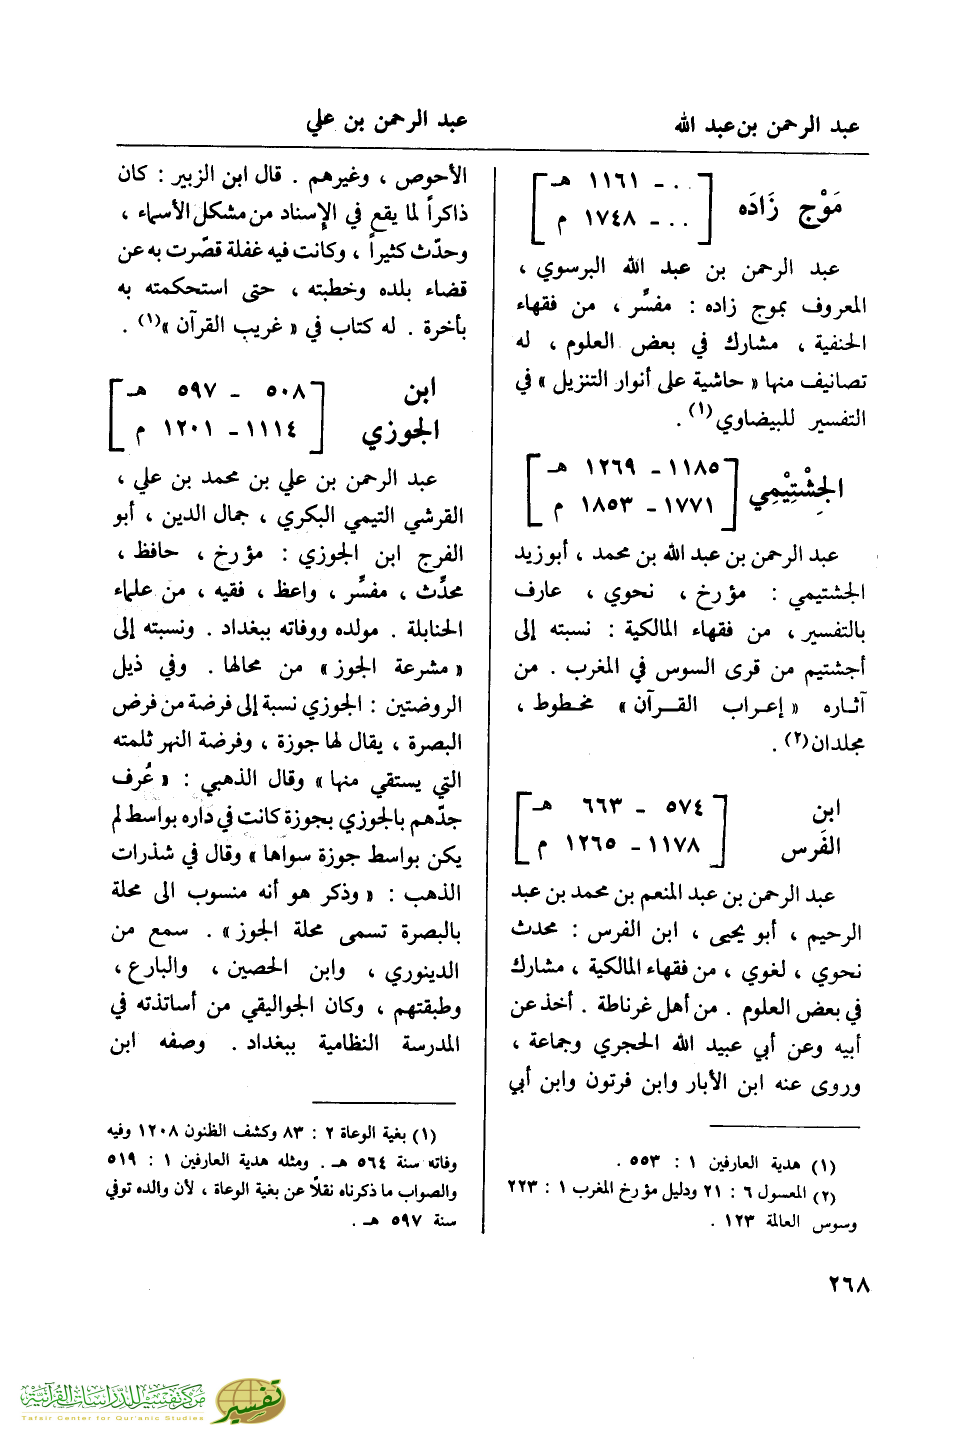 عبد الرحمن بن عبد الله
عبد الرحمن بن علي
مَوْج زَادَه
[ .. - ١١٦١ هـ
.. - ١٧٤٨ م ]
عبد الرحمن بن عبد الله البرسوي ،
المعروف بموج زاده : مفسِّر ، من فقهاء
الحنفية ، مشارك في بعض العلوم ، له
تصانيف منها « حاشية على أنوار التنزيل » في
التفسير للبيضاوي (١) .
الجِشْتِيْمِي
[ ١١٨٥ - ١٢٦٩ هـ
١٧٧١ - ١٨٥٣ م ]
عبد الرحمن بن عبد الله بن محمد ، أبو زيد
الجشتيمي : مؤرخ ، نحوي ، عارف
بالتفسير ، من فقهاء المالكية : نسبته إلى
أجشتيم من قرى السوس في المغرب . من
آثاره « إعراب القرآن » مخطوط ،
مجلدان (٢) .
ابن
الفَرس
[ ٥٧٤ - ٦٦٣ هـ
١١٧٨ - ١٢٦٥ م ]
عبد الرحمن بن عبد المنعم بن محمد بن عبد
الرحيم ، أبو يحيى ، ابن الفرس : محدث
نحوي ، لغوي ، من فقهاء المالكية ، مشارك
في بعض العلوم . من أهل غرناطة . أخذ عن
أبيه وعن أبي عبيد الله الحجري وجماعة ،
وروى عنه ابن الأبار وابن فرتون وابن أبي
(١) هدية العارفين ١ : ٥٥٣ .
(٢) المعسول ٦ : ٢١ ودليل مؤرخ المغرب ١ : ٢٢٣
وسوس العالمة ١٢٣ .
الأحوص ، وغيرهم . قال ابن الزبير : كان
ذاكراً لما يقع في الإسناد من مشكل الأسماء ،
وحدّث كثيراً ، وكانت فيه غفلة قصّرت به عن
قضاء بلده وخطبته ، حتى استحكمته به
بأخرة . له كتاب في « غريب القرآن » (١) .
ابن
الجوزي
[ ٥٠٨ - ٥٩٧ هـ
١١١٤ - ١٢٠١ م ]
عبد الرحمن بن علي بن محمد بن علي ،
القرشي التيمي البكري ، جمال الدين ، أبو
الفرج ابن الجوزي : مؤرخ ، حافظ ،
محدِّث ، مفسِّر ، واعظ ، فقيه ، من علماء
الحنابلة . مولده ووفاته ببغداد . ونسبته إلى
« مشرعة الجوز » من محالها . وفي ذيل
الروضتين : الجوزي نسبة إلى فرضة من فرض
البصرة ، يقال لها جوزة ، وفرضة النهر ثلمته
التي يستقي منها » وقال الذهبي : « عُرف
جدّهم بالجوزي بجوزة كانت في داره بواسط لم
يكن بواسط جوزة سواها » وقال في شذرات
الذهب : « وذكر هو أنه منسوب الى محلة
بالبصرة تسمى محلة الجوز » . سمع من
الدينوري ، وابن الحصين ، والبارع ،
وطبقتهم ، وكان الجواليقي من أساتذته في
المدرسة النظامية ببغداد . وصفه ابن
(١) بغية الوعاة ٢ : ٨٣ وكشف الظنون ١٢٠٨ وفيه
وفاته سنة ٥٦٤ هـ . ومثله هدية العارفين ١ : ٥١٩
والصواب ما ذكرناه نقلاً عن بغية الوعاة ، لأن والده توفي
سنة ٥٩٧ هـ .
٢٦٨
مركز تفسير للدراسات القرآنية
Tafsir Center for Qur'anic Studies
تفسير